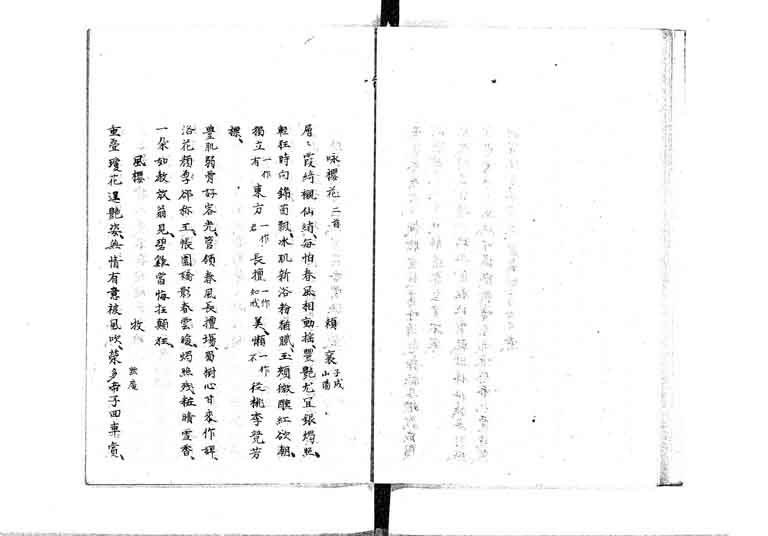 咏櫻花二首 頼襄子成山陽
層々霞綺襯仙綃、每怕春風相動搖、豐艷尤宜銀燭照、
輕狂時向錦茵飄、水肌新浴粉猶膩、玉頰微醺紅欲潮、
獨立有一作東方一作君長擅一作如戒美、懶一作不從桃李競芳
穠、
豊肌弱骨好容光、管領春風長擅場、蜀樹心甘來作婢、
洛花顏季都称王、帳圍瑤影春雲暖、燭照殘粧晴雪香、
一朵如教放翁見、碧雞當悔狂顛狂、
風櫻 牧 默庵
重疊瓊花逞艷姿、無情有意被風吹、榮多帝子回車賞、